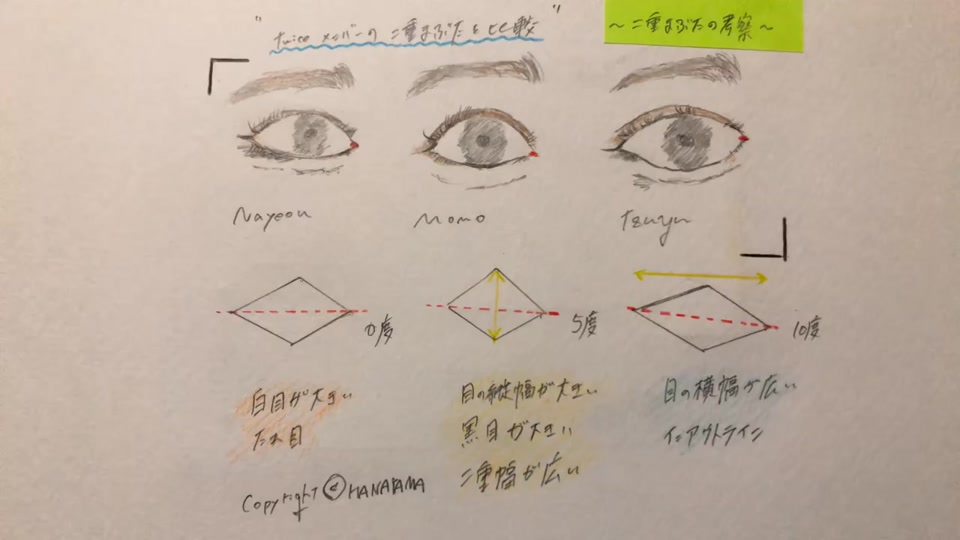 "twice メンバーの 二重まぶたを比較"
～二重まぶたの考察～
Nayeon
Momo
Tzuyu
0度
5度
10度
白目が大きい
たれ目
目の縦幅が大きい
黒目が大きい
二重幅が広い
目の横幅が広い
イン アウトライン
Copyright ©HANARAMA